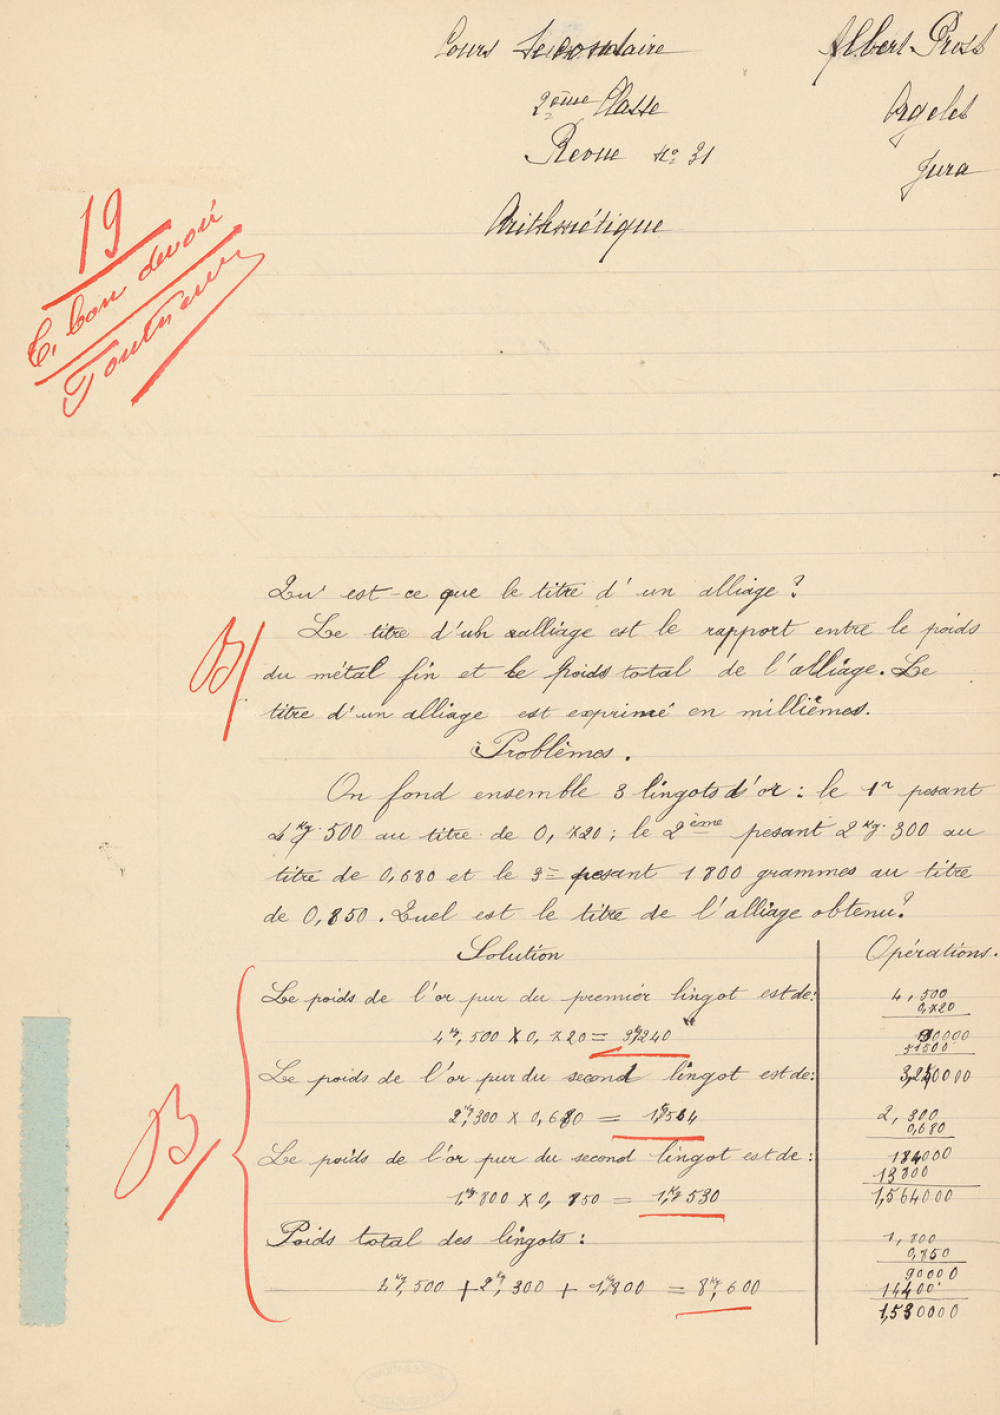 Cours Secondaire
Albert Prost
2ème Classe
Orgelet
Revue No 31
Jura
Arithmétique
19
T. bon devoir
Qu'est-ce que le titre d'un alliage?
Le titre d'un alliage est le rapport entre le poids
du métal fin et le poids total de l'alliage. Le
titre d'un alliage est exprimé en millièmes.
Problèmes.
On fond ensemble 3 lingots d'or : le 1er pesant
4 Kg. 500 au titre de 0,720 ; le 2ème pesant 2 Kg. 300 au
titre de 0,680 et le 3e pesant 1800 grammes au titre
de 0,850. Quel est le titre de l'alliage obtenu?
B
Solution
Le poids de l'or pur du premier lingot est de:
4Kg,500 x 0,720 = 3Kg240
Le poids de l'or pur du second lingot est de:
2Kg,300 x 0,680 = 1Kg564
Le poids de l'or pur du second lingot est de :
1Kg800 x 0,850 = 1Kg530
Poids total des lingots :
4Kg,500 + 2Kg,300 + 1Kg800 = 8Kg,600
B
Opérations.
4,500
0,720
90000
31500
3,240000
2,300
0,680
184000
13800
1,564000
1,800
0,850
90000
14400
1,530000